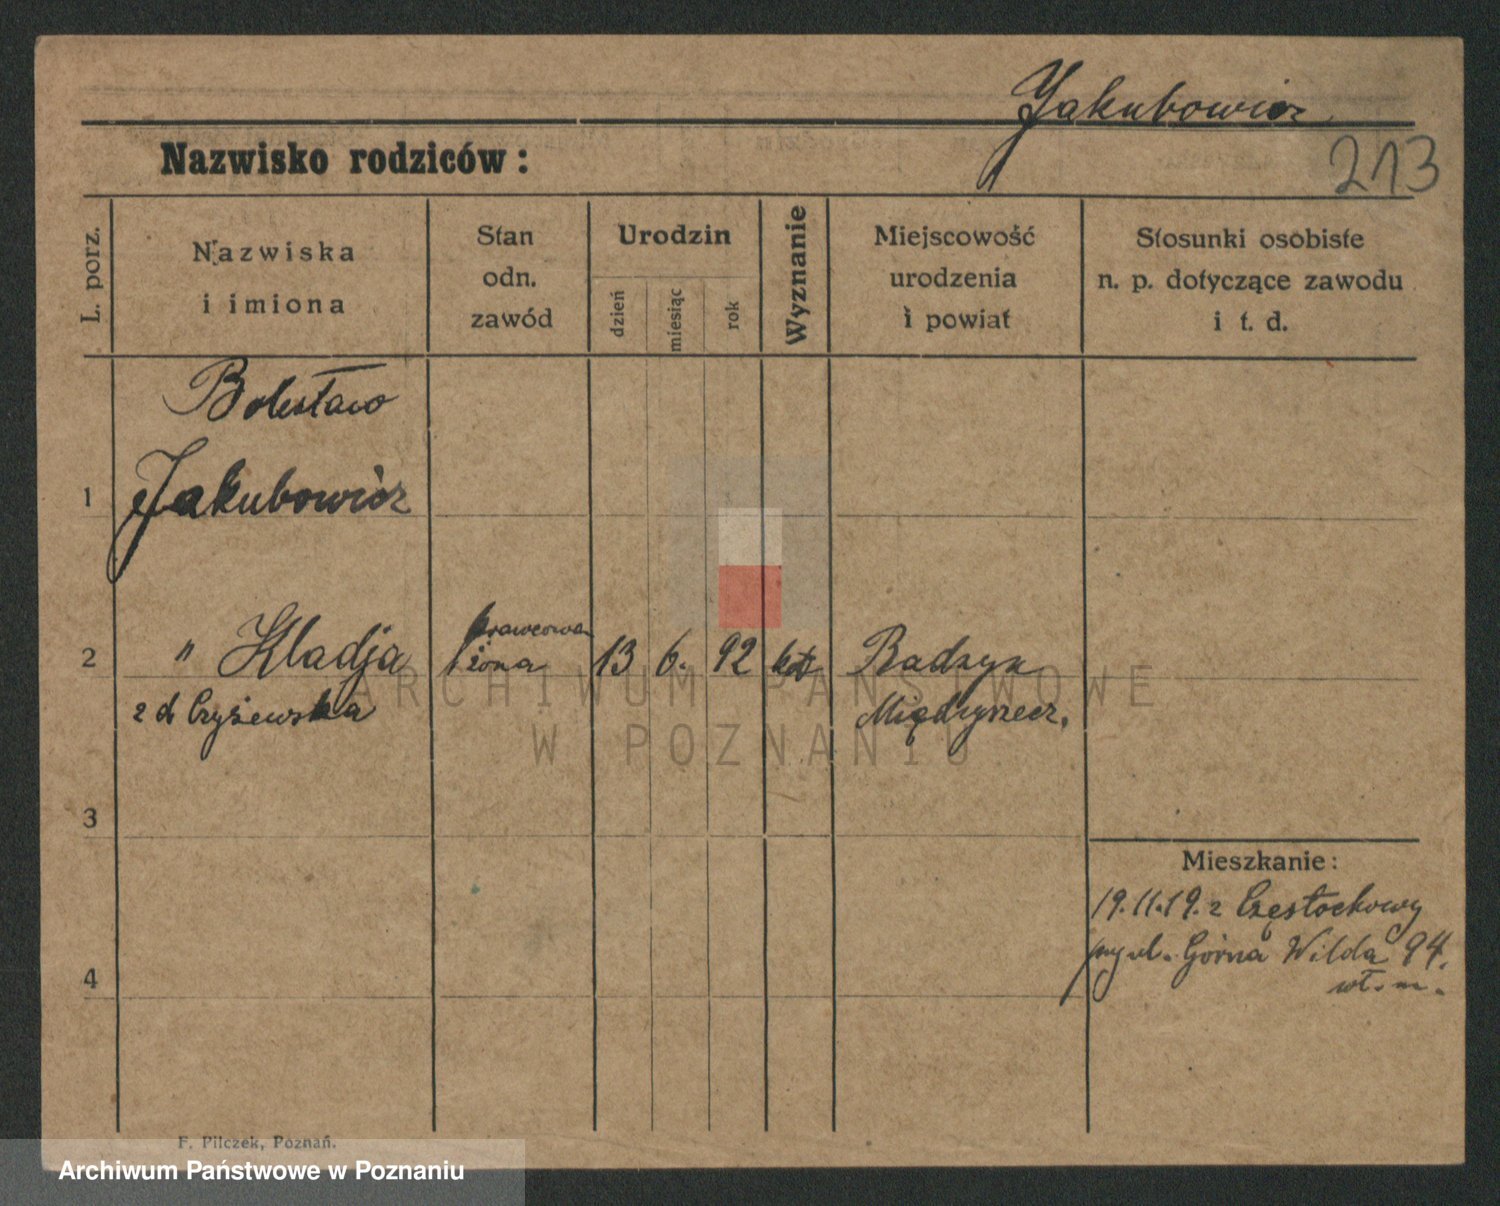 Jakubowicz
213
Nazwisko rodziców:
L. porz.
Nazwiska
i imiona
Stan
odn.
zawód
Urodzin
dzień
miesiąc
rok
Wyznanie
Miejscowość
urodzenia
i powiat
Stosunki osobiste
n. p. dotyczące zawodu
i t. d.
Bolesław
1 Jakubowicz
krawcowa
2 " Kladja żona 13 6. 92 kat Radzyn
z d Czyżewska Międzyrzecz,
3
Mieszkanie:
19.11.19. z Częstochowy
Górna Wilda 94.
4
wł. m.
F. Pilczek, Poznań.
ARCHIWUM PAŃSTWOWE
W POZNANIU
Archiwum Państwowe w Poznaniu